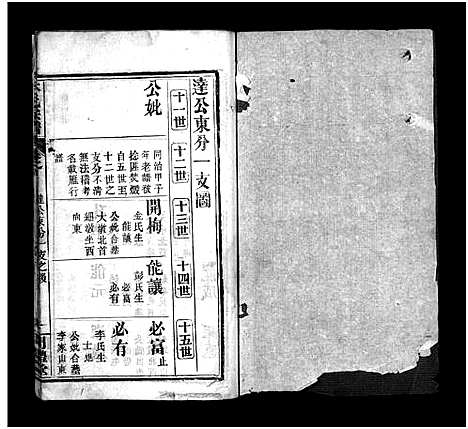 達公東分一支圖
十一世
十二世
十三世
十四世
十五世
公妣
同治甲子
年老譜被
捻匪焚燬
自五世至
十二世之
支分不清
無法稽考
名載雁行
譜
開梅
金氏生
能讓
公妣合墓
大墩北首
坐西
向東
能讓
彭氏生
必富
必有
必富止
必有
李氏生
公妣合墓
李家山東